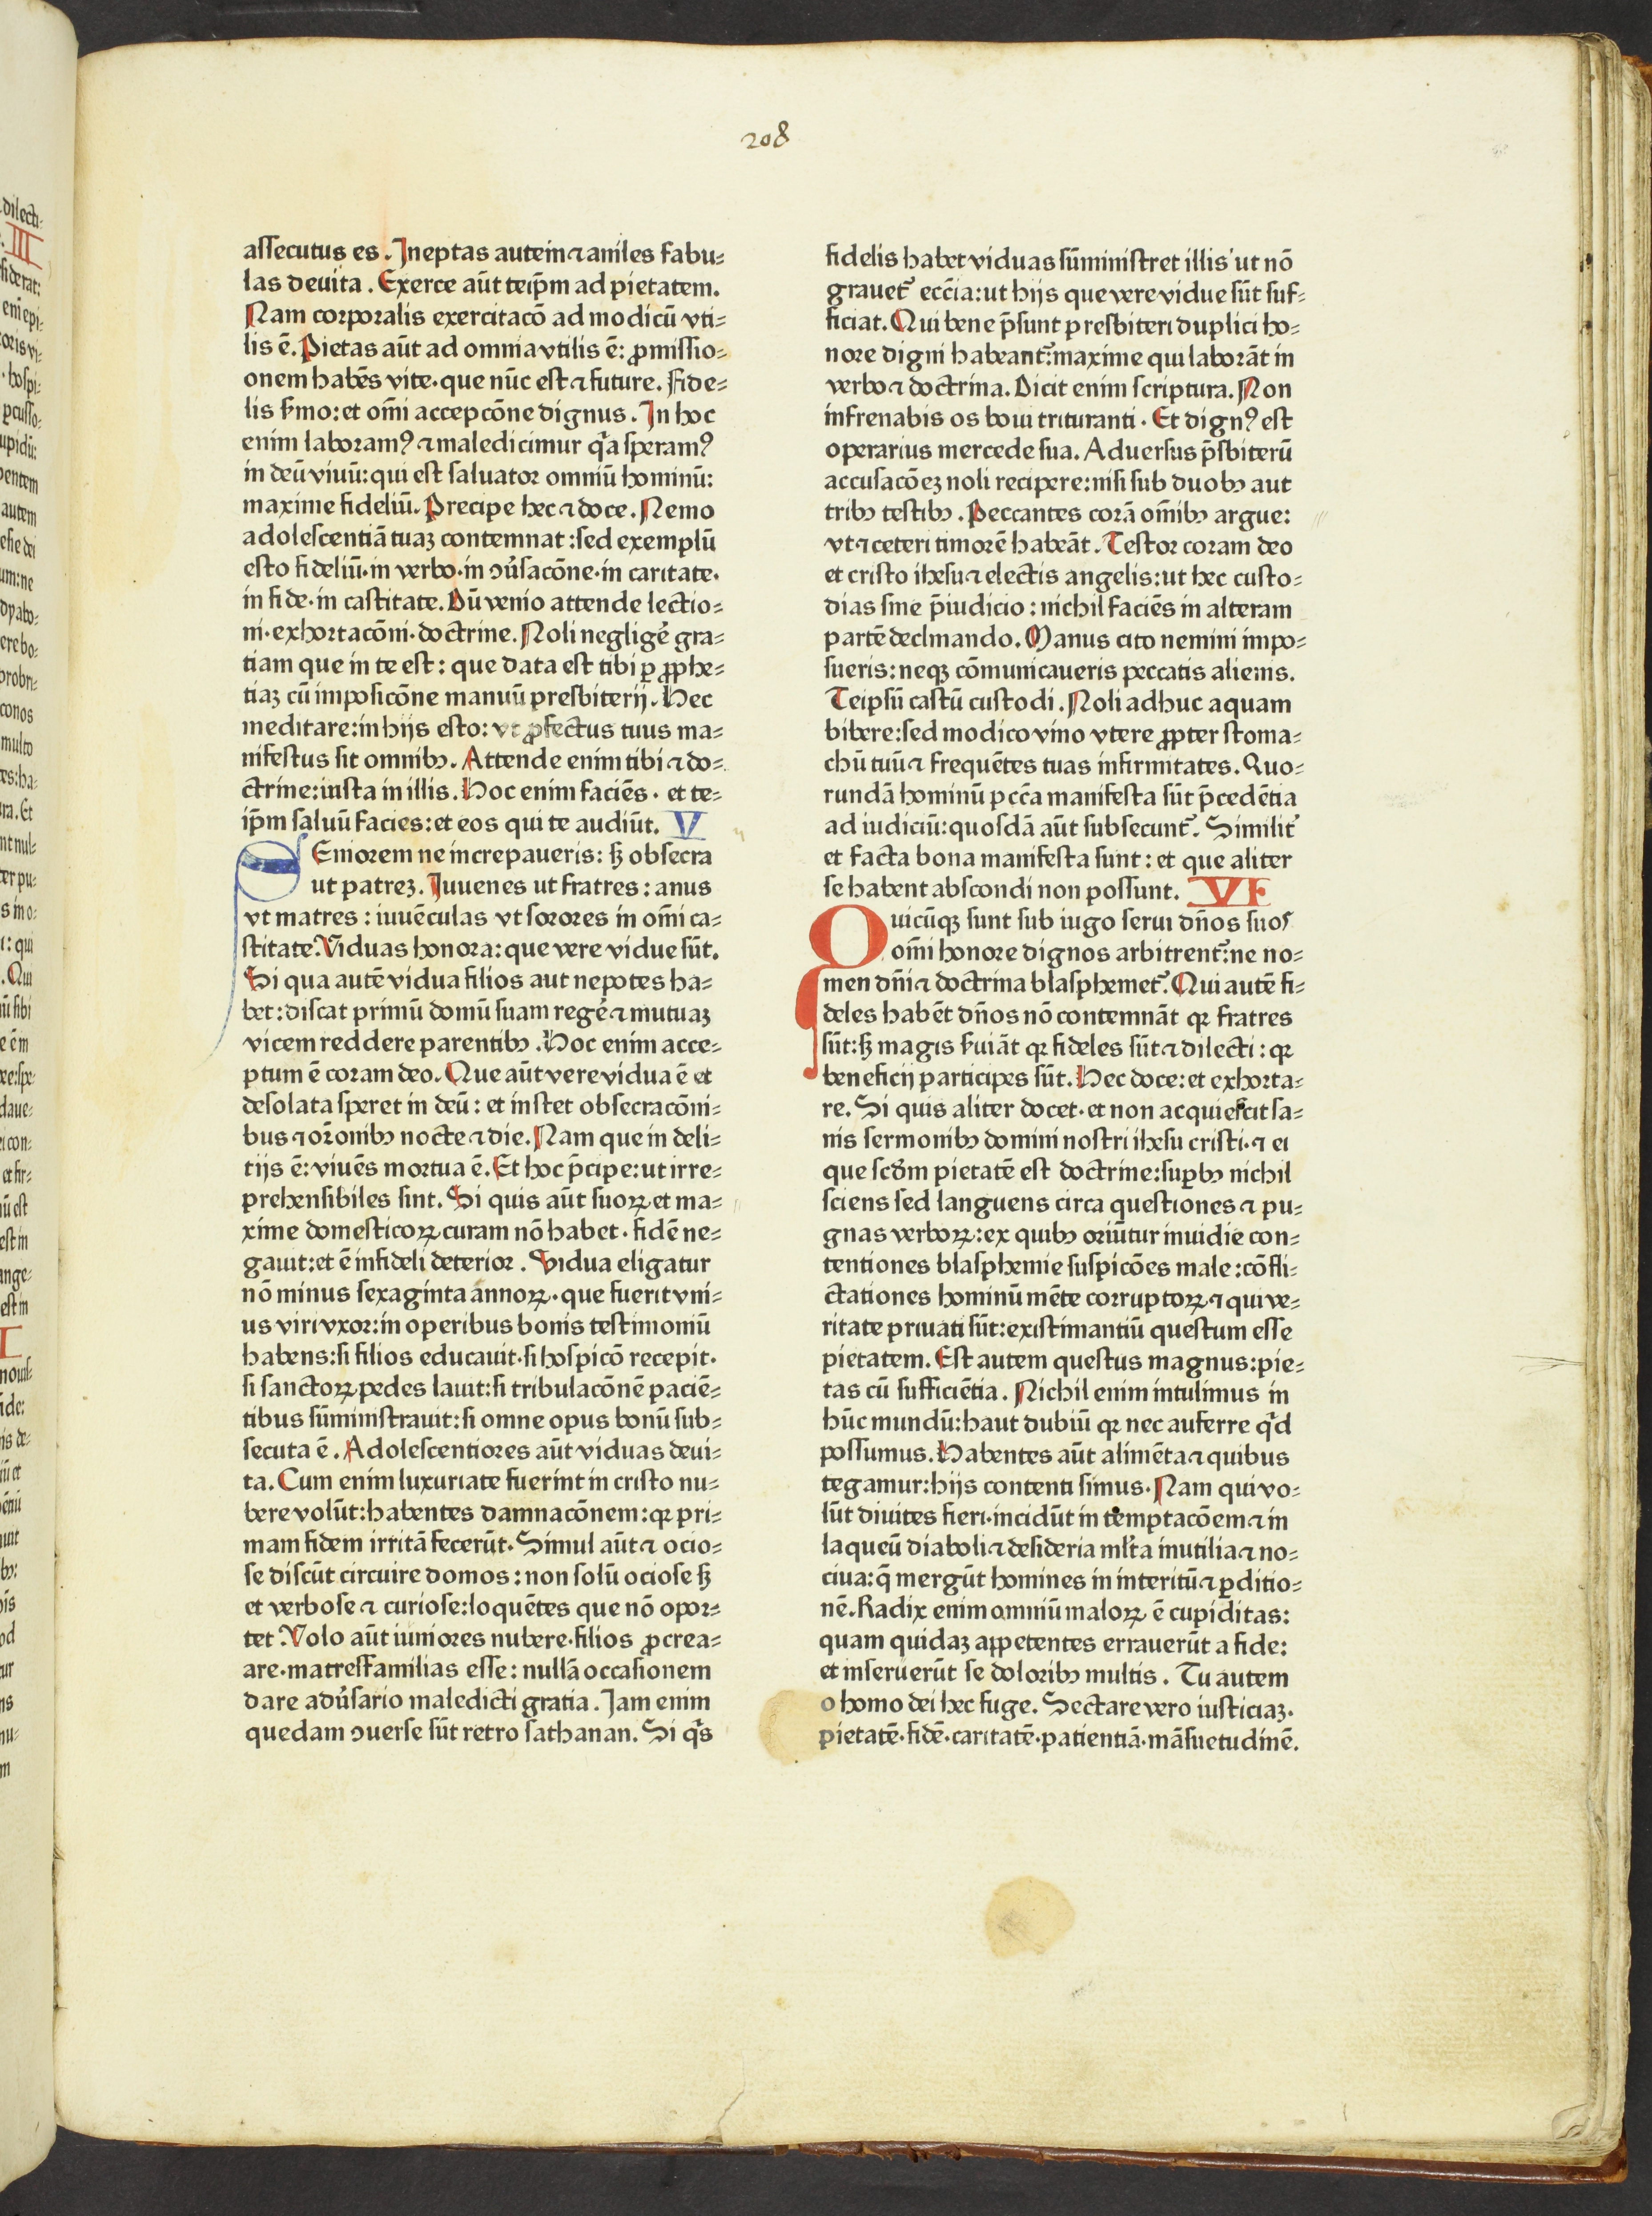 208
assecutus es. Ineptas autem ⁊ aniles fabu⸗
las deuita. Exerce aūt teip̄m ad pietatem.
Nam corporalis exercitacō ad modicū vti⸗
lis ē. Pietas aūt ad omnia vtilis ē: ꝓmissio⸗
onem habēs vite· que nūc est ⁊ future. Fide⸗
lis ẜmo: et om̄i accepcōne dignus. In hoc
enim laboramꝰ ⁊ maledicimur qͣa speramꝰ
in deū viuū: qui est saluator omniū hominū:
maxime fideliū. Precipe hec ⁊ doce. Nemo
adolescentiā tuaꝫ contemnat: sed exemplū
esto fideliū· in verbo· in ꝯu̓sacōne· in caritate.
in fide· in castitate. Dū venio attende lectio⸗
ni· exhortacōni· doctrine. Noli neglige᷑ gra⸗
tiam que in te est: que data est tibi ꝑ ꝓphe⸗
tiaꝫ cū imposicōne manuū presbiterij. Hec
meditare: in hijs esto: vt ꝓfectus tuus ma⸗
nifestus sit omnibꝫ. Attende enim tibi ⁊ do⸗
ctrine: insta in illis. Hoc enim faciēs· et te⸗
ip̄m saluū facies: et eos qui te audiūt. V
SEniorem ne increpaueris: sꝫ obsecra
ut patreꝫ. Iuuenes ut fratres: anus
vt matres: iuuēculas vt sorores in om̄i ca⸗
stitate. Viduas honora: que vere vidue sūt.
Si qua autē vidua filios aut nepotes ha⸗
bet: discat primū domū suam rege᷑ ⁊ mutuaꝫ
vicem reddere parentibꝫ. Hoc enim acce⸗
ptum ē coram deo. Que aūt vere vidua ē et
desolata speret in deū: et instet obsecracōni⸗
bus ⁊ or̄onibꝫ nocte ⁊ die. Nam que in deli⸗
tijs ē: viuēs mortua ē. Et hoc p̄cipe: ut irre⸗
prehensibiles sint. Si quis aūt suoꝝ et ma⸗
xime domesticoꝝ curam nō habet· fidē ne⸗
gauit: et ē infideli deterior. Vidua eligatur
nō minus sexaginta annoꝝ· que fuerit vni⸗
us viri vxor: in operibus bonis testimoniū
habens: si filios educauit· si hospicō recepit·
si sanctoꝝ pedes lauit: si tribulacōnē paciē⸗
tibus sūministrauit: si omne opus bonū sub⸗
secuta ē. Adolescentiores aūt viduas deui⸗
ta. Cum enim luxuriate fuerint in cristo nu⸗
bere volūt: habentes damnacōnem: qꝛ pri⸗
mam fidem irritā fecerūt. Simul aūt ⁊ ocio⸗
se discūt circuire domos: non solū ociose sꝫ
et verbose ⁊ curiose: loquētes que nō opor⸗
tet. Volo aūt iuniores nubere· filios ꝓcrea⸗
are· matresfamilias esse: nullā occasionem
dare adu̓sario maledicti gratia. Jam enim
quedam ꝯuerse sūt retro sathanan. Si qͥs
fidelis habet viduas sūministret illis ut nō
grauet᷑ ecc̄ia: ut hijs que vere vidue sūt suf⸗
ficiat. Qui bene p̄sunt presbiteri duplici ho⸗
nore digni habeant᷑: maxime qui laborāt in
verbo ⁊ doctrina. Dicit enim scriptura. Non
infrenabis os boui trituranti. Et dignꝰ est
operarius mercede sua. Aduersus p̄sbiterū
accusacōeꝫ noli recipere: nisi sub duobꝫ aut
tribꝫ testibꝫ. Peccantes corā om̄ibꝫ argue:
vt ⁊ ceteri timorē habeāt. Testor coram deo
et cristo ihesu ⁊ electis angelis: ut hec custo⸗
dias sine p̄iudicio: nichil faciēs in alteram
partē declinando. Manus cito nemini impo⸗
sueris: neqꝫ cōmunicaueris peccatis alienis.
Teipsū castū custodi. Noli adhuc aquam
bibere: sed modico vino vtere ꝓpter stoma⸗
chū tuū ⁊ frequētes tuas infirmitates. Quo⸗
rundā hominū pcc̄a manifesta sūt p̄cedētia
ad iudiciū: quosdā aūt subsecunt᷑. Similit᷑
et facta bona manifesta sunt: et que aliter
se habent abscondi non possunt. VI
Quicūqꝫ sunt sub iugo serui dn̄os suos
om̄i honore dignos arbitrent᷑: ne no⸗
men dn̄i ⁊ doctrina blasphemet᷑. Qui autē fi⸗
deles habēt dn̄os nō contemnāt qꝛ fratres
sūt: sꝫ magis ẜuiāt qꝛ fideles sūt ⁊ dilecti: qꝛ
beneficij participes sūt. Hec doce: et exhorta⸗
re. Si quis aliter docet· et non acquiescit sa⸗
nis sermonibꝫ domini nostri ihesu cristi· ⁊ ei
que scd̄m pietatē est doctrine: suꝑbꝫ nichil
sciens sed languens circa questiones ⁊ pu⸗
gnas verboꝝ: ex quibꝫ oriūtur inuidie con⸗
tentiones blasphemie suspicōes male: cōfli⸗
ctationes hominū mēte corruptoꝝ ⁊ qui ve⸗
ritate priuati sūt: existimantiū questum esse
pietatem. Est autem questus magnus: pie⸗
tas cū sufficiētia. Nichil enim intulimus in
hūc mundū: haut dubiū qꝛ nec auferre qͥd
possumus. Habentes aūt alimēta ⁊ quibus
tegamur: hijs contenti simus. Nam qui vo⸗
lūt diuites fieri· incidūt in temptacōem ⁊ in
laqueū diaboli ⁊ desideria ml̓ta inutilia ⁊ no⸗
ciua: q̄ mergūt homines in interitū ⁊ ꝑditio⸗
nē. Radix enim omniū maloꝝ ē cupiditas:
quam quidaꝫ appetentes errauerūt a fide:
et inseruerūt se doloribꝫ multis. Tu autem
o homo dei hec fuge. Sectare vero iusticiaꝫ.
pietatē· fidē· caritatē· patientiā· māsuetudinē.